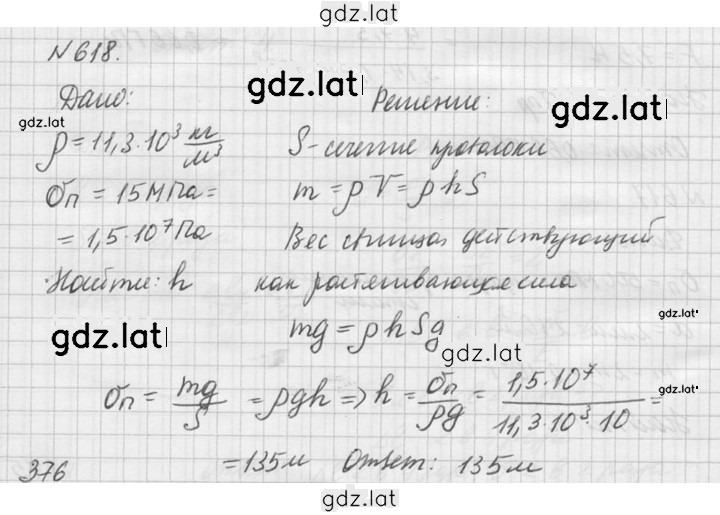 gdz.lat
N 618.
gdz.lat
Дано:
Решение:
gdz.lat
gdz.lat
ρ = 11,3·10³ кг/м³
S - сечение проволоки
σп = 15 МПа =
m = ρV = ρhS
= 1,5·10⁷ Па
Вес свинца действующий
Найти: h
как растягивающая сила
gdz.lat
mg = ρhSg
gdz.lat
gdz.lat
σп = mg/S = ρgh => h = σп/ρg = 1,5·10⁷/11,3·10³·10 =
gdz.lat
376
= 135 м Ответ: 135 м
gdz.lat